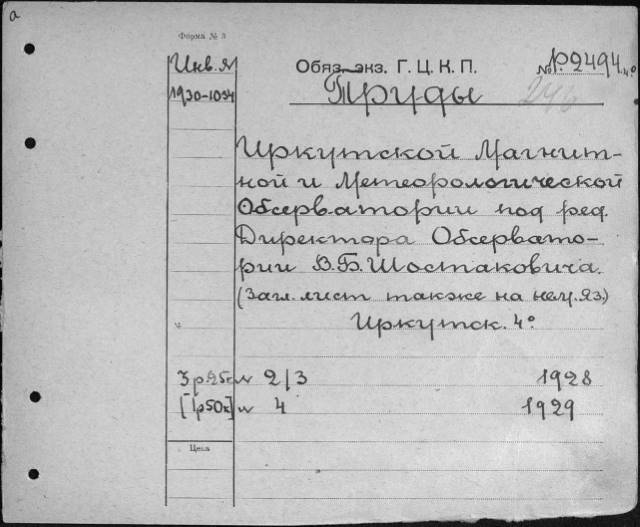 а
Форма № 3
Инв. №
Обяз. экз. Г. Ц. К. П.
№ Р.2494. 4°
1930-1034
Труды
246
Иркутской Магнит-
ной и Метеорологической
Обсерватории под ред.
Директора Обсервато-
рии В.Б. Шостаковича.
(Загл. лист также на нем. яз.)
Иркутск. 4°
3 р. 25к. № 2/3 1928
[1р50к] № 4 1929
Цена